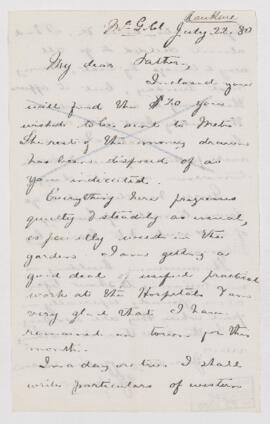 McG. Col
July 22. 80
My dear Father,
Inclosed you
will find the $20 you
wished to be sent to Metis
The rest of the money drawn
has been disposed of as
you indicated.
Everything here progresses
quietly & steadily as usual,
especially weeds in the
gardens I am getting a
good deal of useful practical
work at the Hospital & am
very glad that I have
remained in town for this
month.
In a day or two I shall
write particulars of western